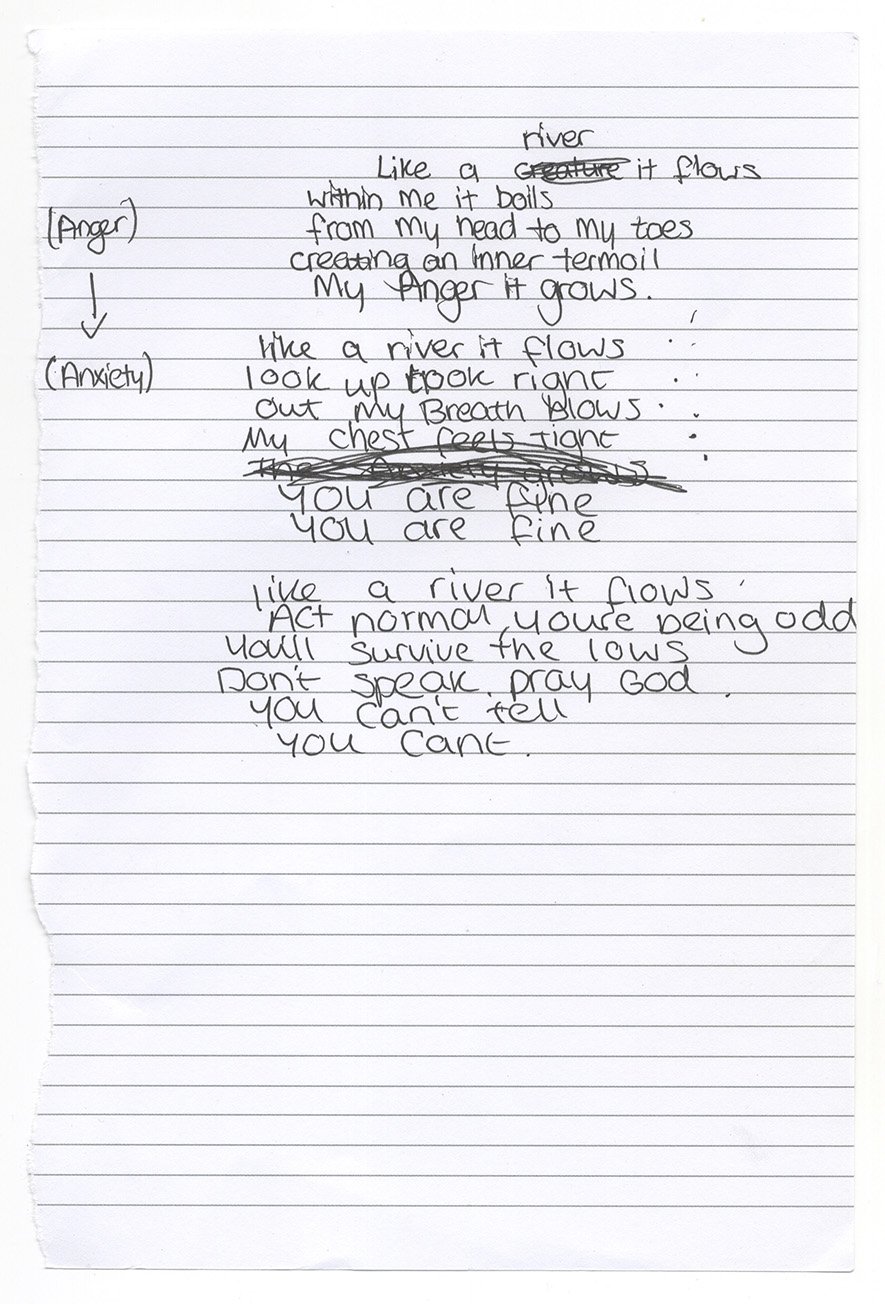 river
Like a creature it flows
within me it boils
(Anger)
from my head to my toes
creating an Inner termoil
My Anger it grows.
like a river it flows
(Anxiety)
look up look right
out my Breath blows.
My chest feels tight
The Anxiety grows
you are fine
you are fine
like a river it flows
Act normal, you're being odd
You'll survive the lows
Don't speak. pray God.
you can't tell
you cant.